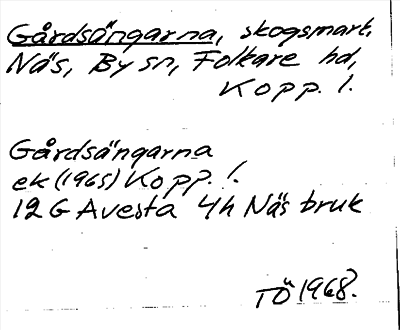 Gårdsängarna, skogsmart,
Näs, By sn, Folkare hd,
Kopp. l.
Gårdsängarna
ek (1965) Kopp. l.
12 G Avesta 4h Näs bruk
TÖ 1968.